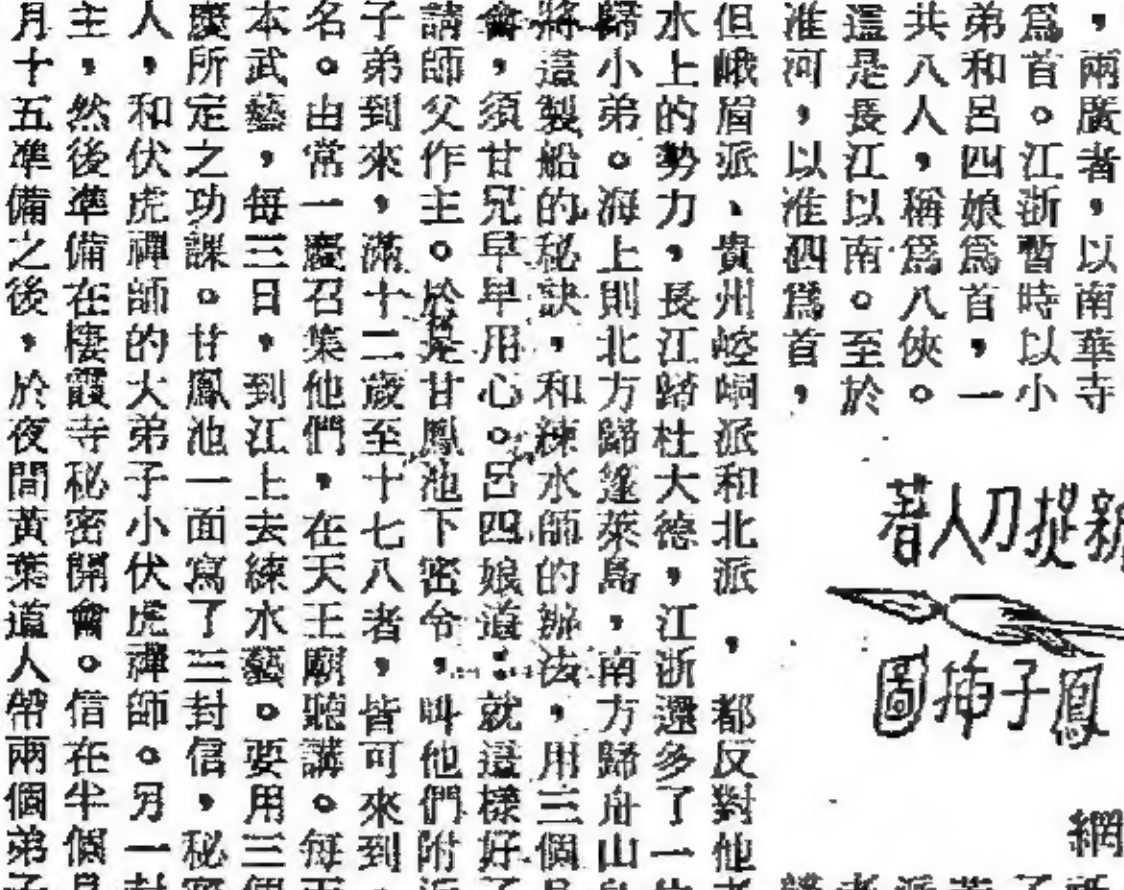 ，兩廣者，以南華寺
爲首。江浙暫時以小
弟和呂四娘爲首，一
共八人，稱爲八俠。
這是長江以南。至於
淮河，以淮泗爲首，
但峨眉派、貴州崆峒派和北派，都反對他
水上的勢力，長江歸杜大德，江浙還多了一
歸小弟。海上則北方歸蓬萊島，南方歸舟山
將這製船的秘訣，和練水師的辦法，用三個
會，須甘兄早早用心。呂四娘道：就這樣好
請師父作主。於是甘鳳池下密令，叫他們附
子弟到來，滿十二歲至十七八者，皆可來到
名。由常一慶召集他們，在天王廟聽講。每
本武藝，每三日，到江上去練水藝。要用三
慶所定之功課。甘鳳池一面寫了三封信，秘
人，和伏虎禪師的大弟子小伏虎禪師。另一
主，然後準備在棲霞寺秘密開會。信在半個
月十五準備之後，於夜間黃葉道人帶兩個弟
捉刀人著
鳳子插圖
網